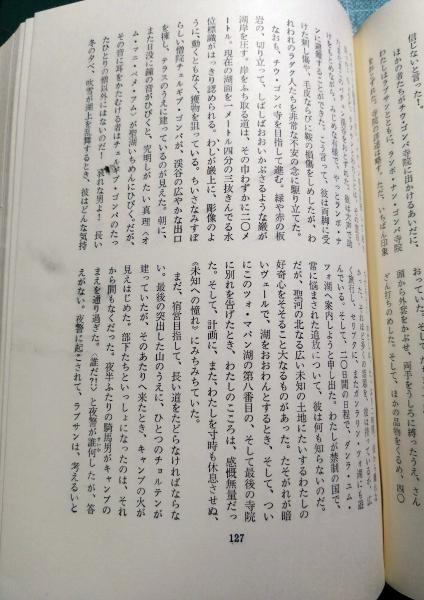 信じないと言った！。
ほかの者たちがチウ・ゴンパ寺院に出かけるあいだに、
わたしはラブサンとともに、ランボ・ナン・ゴンパ寺院
けた刺し傷や、毛皮ならびに靴の損傷をしめしたが、わ
れわれのラダク人たちを非常な不安の念に駆り立てた。
なおも、チウ・ゴンパ寺を目指して進む。緑や赤の板
岩の、切り立って、しばしばおおいかぶさるような巌が
湖岸を圧す。岸をふち取る道は、その巾わずかに二〇メ
ートル。現在の湖面を一メートル四分の三抜きんでる水
位標識がはっきり認められる。わしが巌上に、彫像のよ
うに、動くともなく、獲物を狙っている。ちいさなみすぼ
らしい僧院チェルギブ・ゴンパが、渓谷の広やかな出口
を擁し、テラスのうえに建っているのが見えた。朝に、
また日没に鐘の音がひびくと、究明しがたい真理〈オ
ム・マニ・ペメ・フム〉が聖湖いちめんにひびく。だが、
その音に耳をかたむける者はチェルギブ・ゴンパのたっ
たひとりの僧以外にはないのだ！　哀れな男よ！　長い
冬の夕べ、吹雪が湖上を乱舞するとき、彼はどんな気持
頭から外套をかぶせ、両手をうしろに縛ったうえ、さん
ざん打ちのめした。そして、ほかの品物をくるめ、四〇
フォ湖へ案内しようと申し出た。わたしが禁制の国で、
常に悩まされた追放について、彼は何も知らないのだ。
だが、聖河の北なる広い未知の土地にたいするわたしの
好奇心をそそること大なるものがあった。たそがれが暗
いヴェールで、湖をおおわんとするとき、そして、つい
にこのツォ・マパン湖の第八番目の、そして最後の寺院
に別れを告げたとき、わたしのこころは、感慨無量だっ
た。そして、計画に、また、わたしを寸時も休息させぬ、
《未知への憧れ》にみちみちていた。
まだ、宿営目指して、長い道をたどらなければならな
い。最後の突出した山のうえに、ひとつのチョルテンが
建っていたが、そのあたりへ来たとき、キャンプの火が
見えはじめた。部下たちといっしょになったのは、それ
から間もなくだった。夜半ふたりの騎馬男がキャンプの
まえを通り過ぎた。〈誰だ?!〉と夜警が誰何したが、答
えがない。夜警に起こされて、ラブサンは、考えると
127